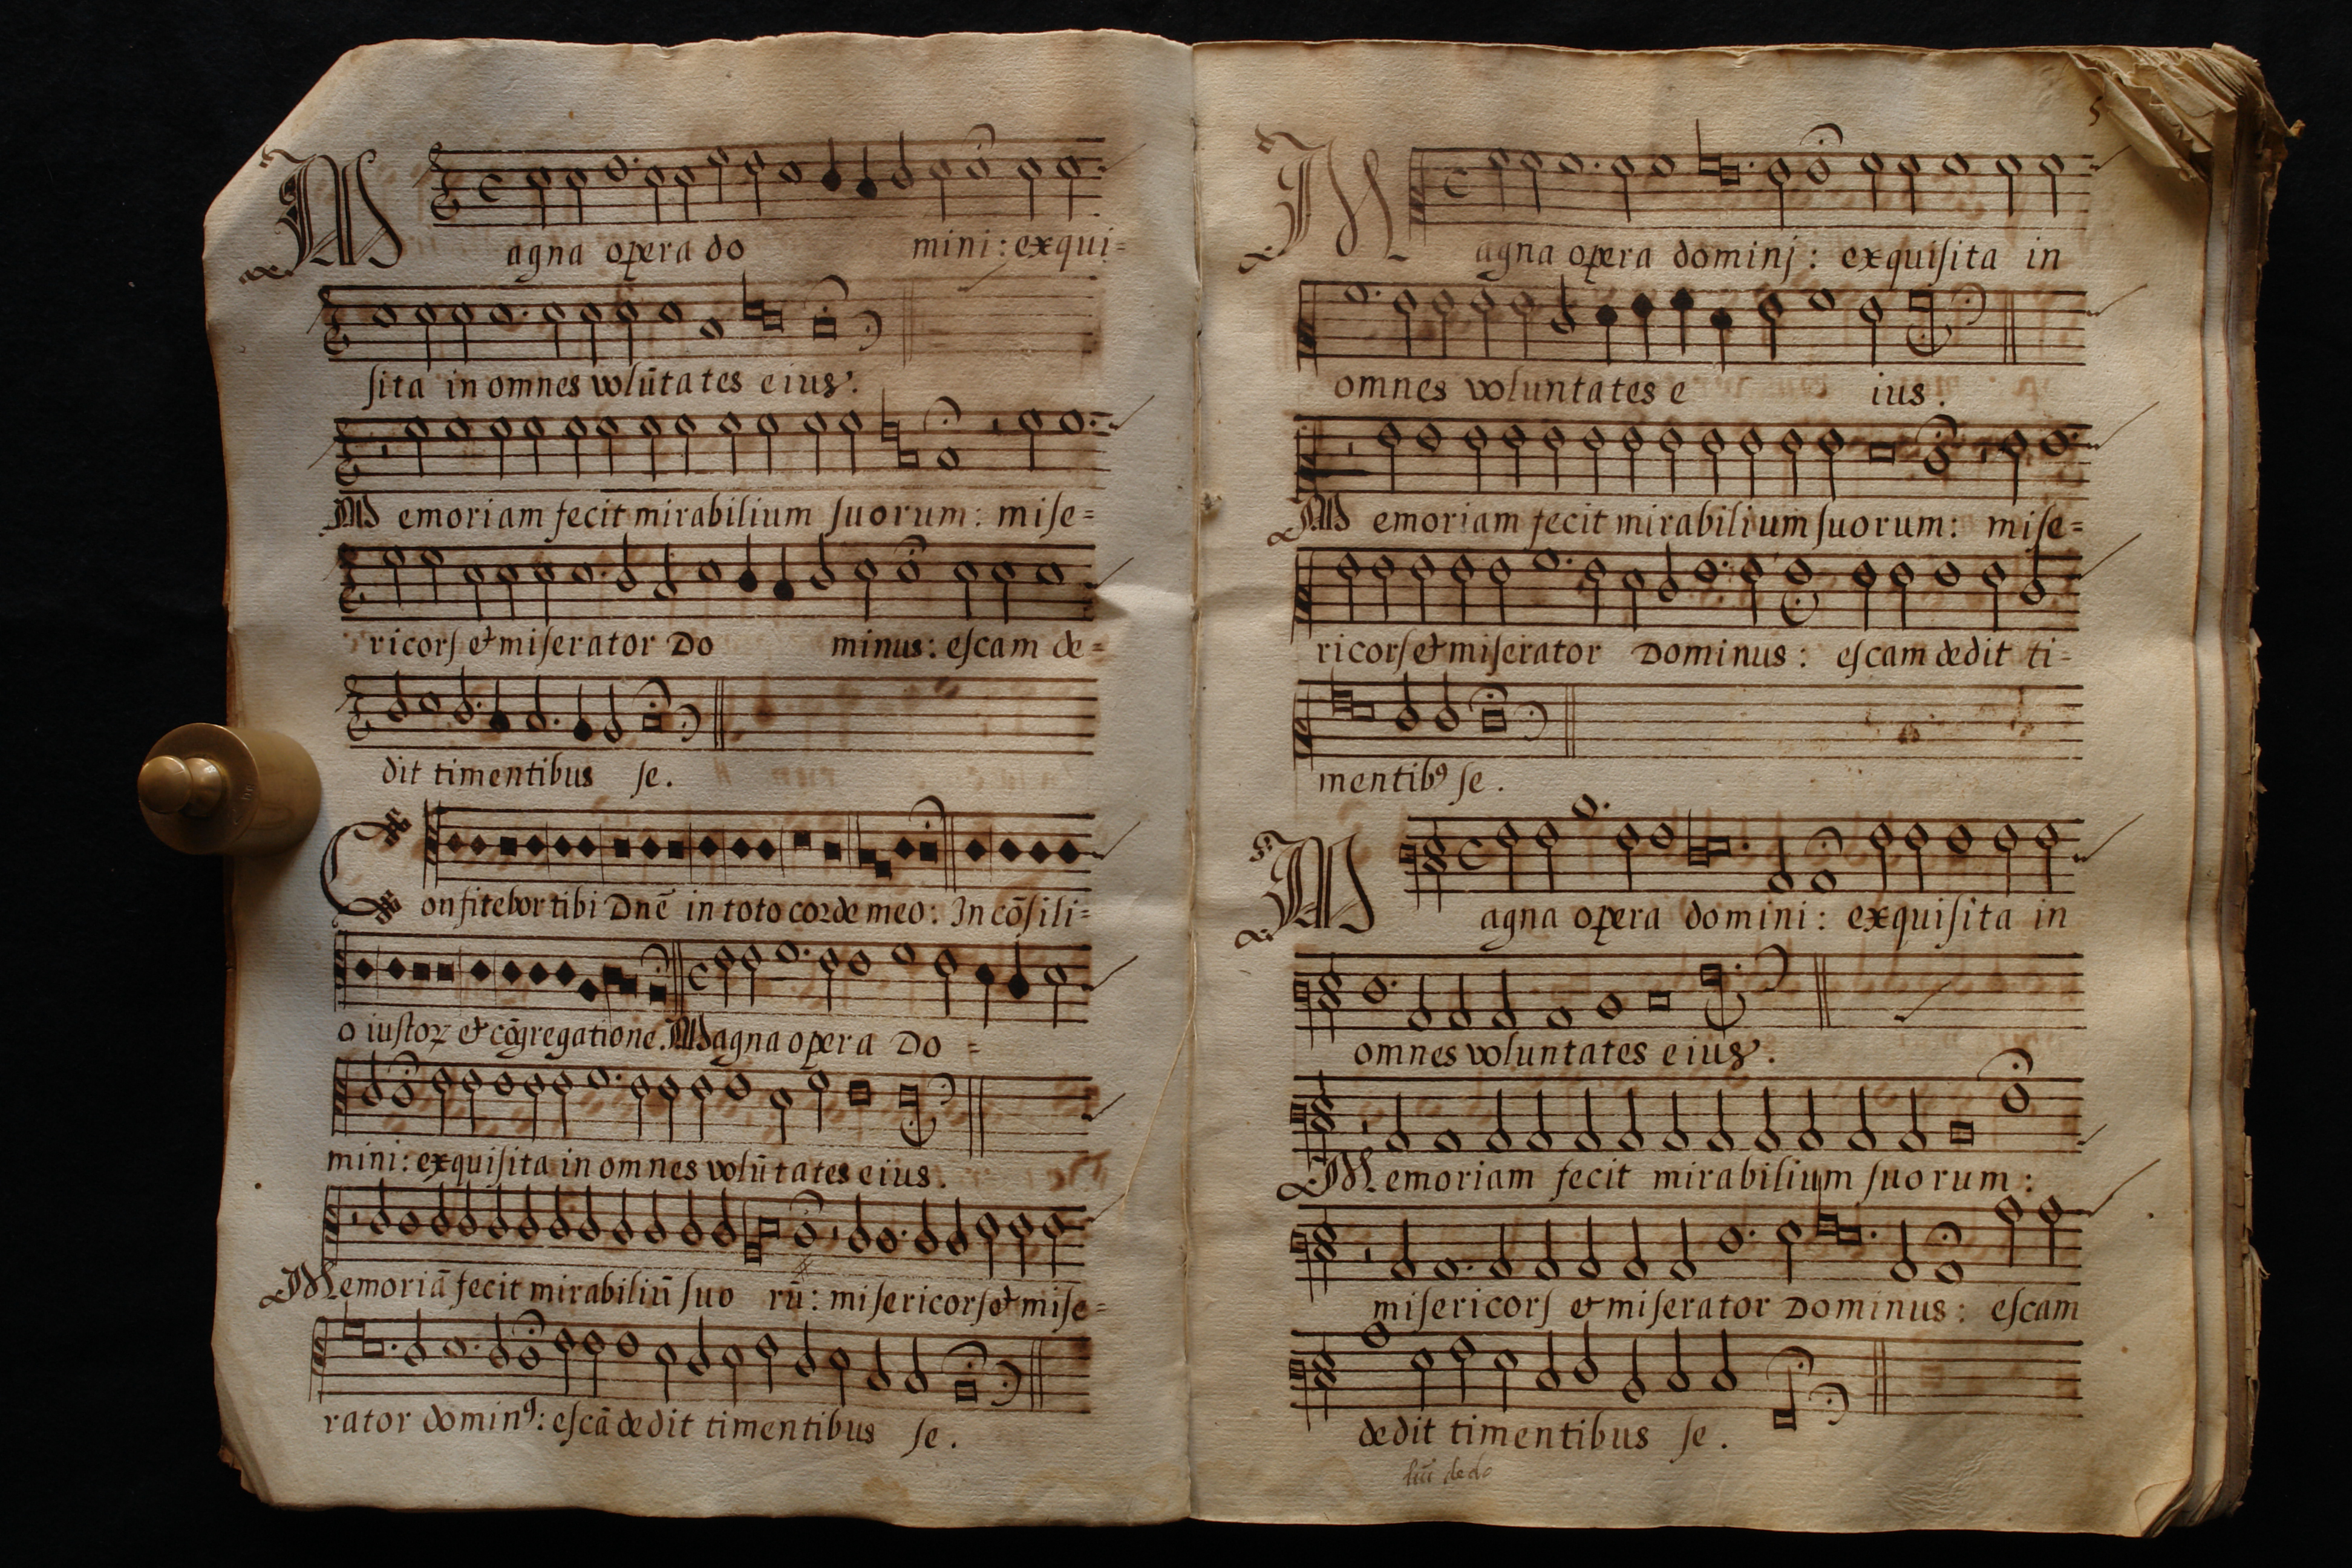 Magna opera do mini: exqui=
ſita in omnes volūtates eius.
Memoriam fecit mirabilium ſuorum: miſe=
ricorſ et miſerator Do minus: eſcam de=
dit timentibus ſe.
Confitebor tibi Dnē in toto corde meo: In cōſili=
o iuſtoꝝ et cōgregatione. Magna opera Do=
mini: exquiſita in omnes volūtates eius.
Memoriā fecit mirabiliū ſuo rū: miſericorſ et miſe=
rator dominꝰ: eſcā dedit timentibus ſe.
5
Magna opera dominj: exquiſita in
omnes voluntates e ius.
Memoriam fecit mirabilium ſuorum: miſe=
ricorſ et miſerator Dominus: eſcam dedit ti-
mentibꝰ ſe.
Magna opera domini: exquiſita in
omnes voluntates eius.
Memoriam fecit mirabilium ſuorum:
miſericorſ et miſerator Dominus: eſcam
dedit timentibus ſe.